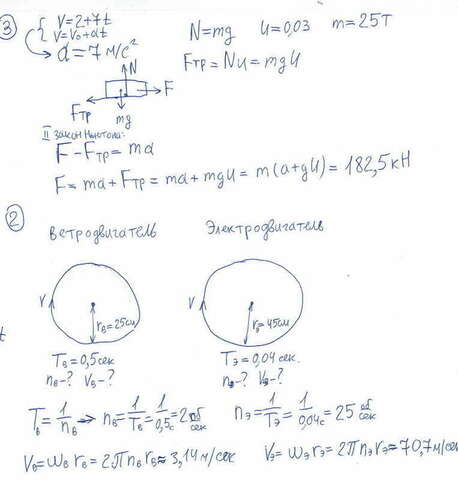 ③ { V=2+7t
V=V₀+at
→ a=7 м/с²
N=mg U=0,03 m=25Т
Fтр=NU=mgU
N
F
Fтр
mg
II закон Ньютона:
F-Fтр=ma
F=ma+Fтр=ma+mgU=m(a+gU)=182,5кН
② Ветродвигатель Электродвигатель
V rв=25см
V rэ=45см
Tв=0,5сек Tэ=0,04сек.
nв-? Vв-? nэ-? Vэ-?
Tв=1/nв → nв=1/Tв=1/0,5с=2 об/сек nэ=1/Tэ=1/0,04с=25 об/сек
Vв=ωв rв=2π nв rв≈3,14м/сек Vэ=ωэ rэ=2π nэ rэ≈70,7м/сек
t